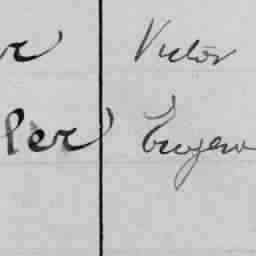 r Victor
ler Eugen